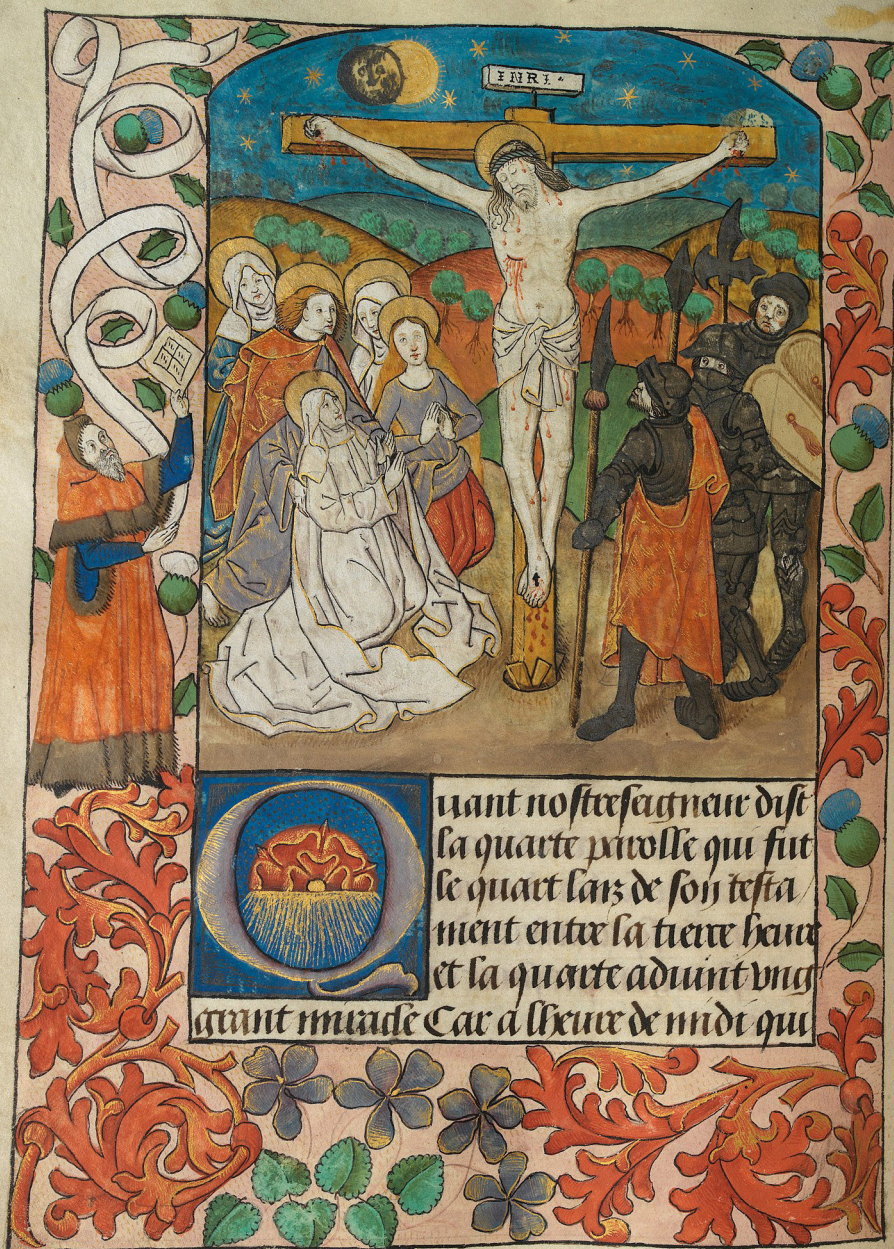 INRI
Quant nostre seigneur dist
la quarte parolle qui fut
le quart lanz de son testa
ment entre la tierce heure
et la quarte aduint vng
grant miracle Car a lheure de midi qui